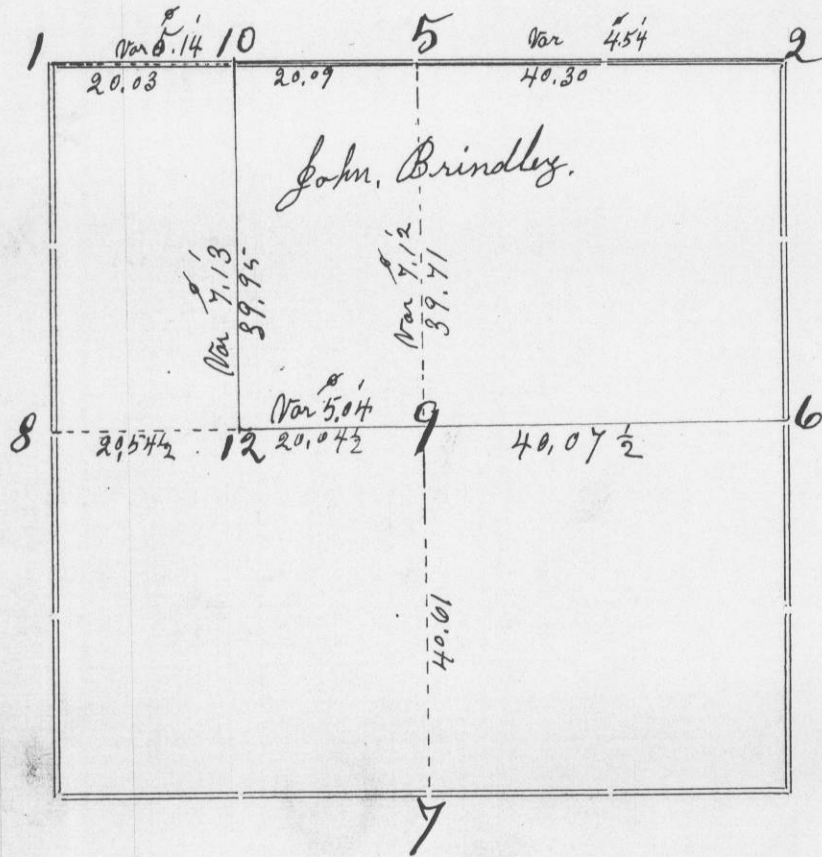 1 Var 5°.14' 10 5 Var 4°.54' 2
20.03 20.09 40.30
John. Brindley.
Var 7°.13'
39.95
Var 7°.12'
39.71
Var 5°.04'
8 20,54½ 12 20,04½ 9 40,07½ 6
40.61
7